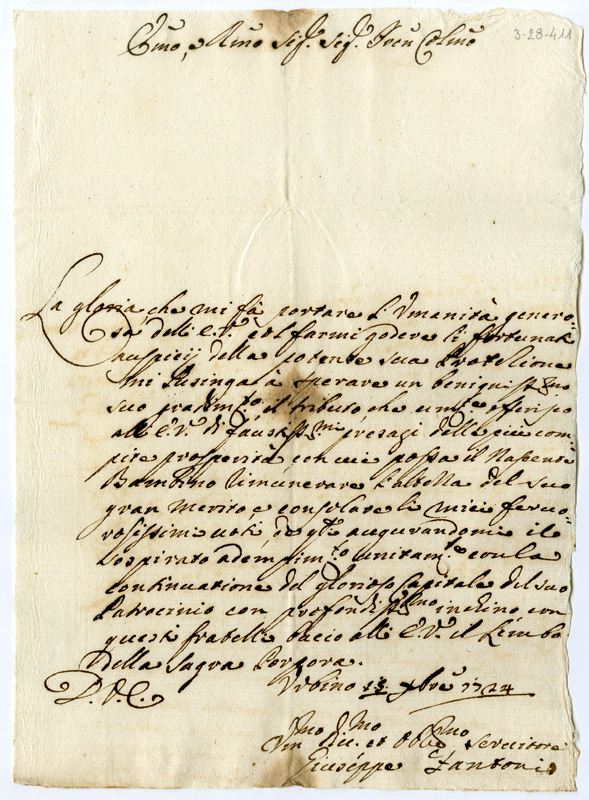 3-28-411
Emo, e Rmo Sig.r Sig.r Pron Colmo
La gloria, che mi fà portare l'Vmanità genero=
sa dell'E.V. col farmi godere li fortunati
auspicij della potente sua Protezione
mi lusinga à sperare un benignissmo
suo gradimto il tributo che umte offerisco
all'E.V. di faustissmi presagi delle più com
pite prosperità, con cui possa il Nascente
Bambino rimunerare l'altezza del suo
gran merito, e consolare li miei fervo=
rosissimi uoti, de qli accurandomi il
sospirato adempimto unitamte con la
continuatione del glorioso Capitale del suo
Patrocinio con profondissmo inchino con
questi fratelli bacio all'E.V. il Lembo
della Sagra Porpora.
D. V. E. Vrbino 15 Xbre 1724
Vmo Dmo
Vm Dev. et Obbmo Servitore
Giuseppe Fantoni